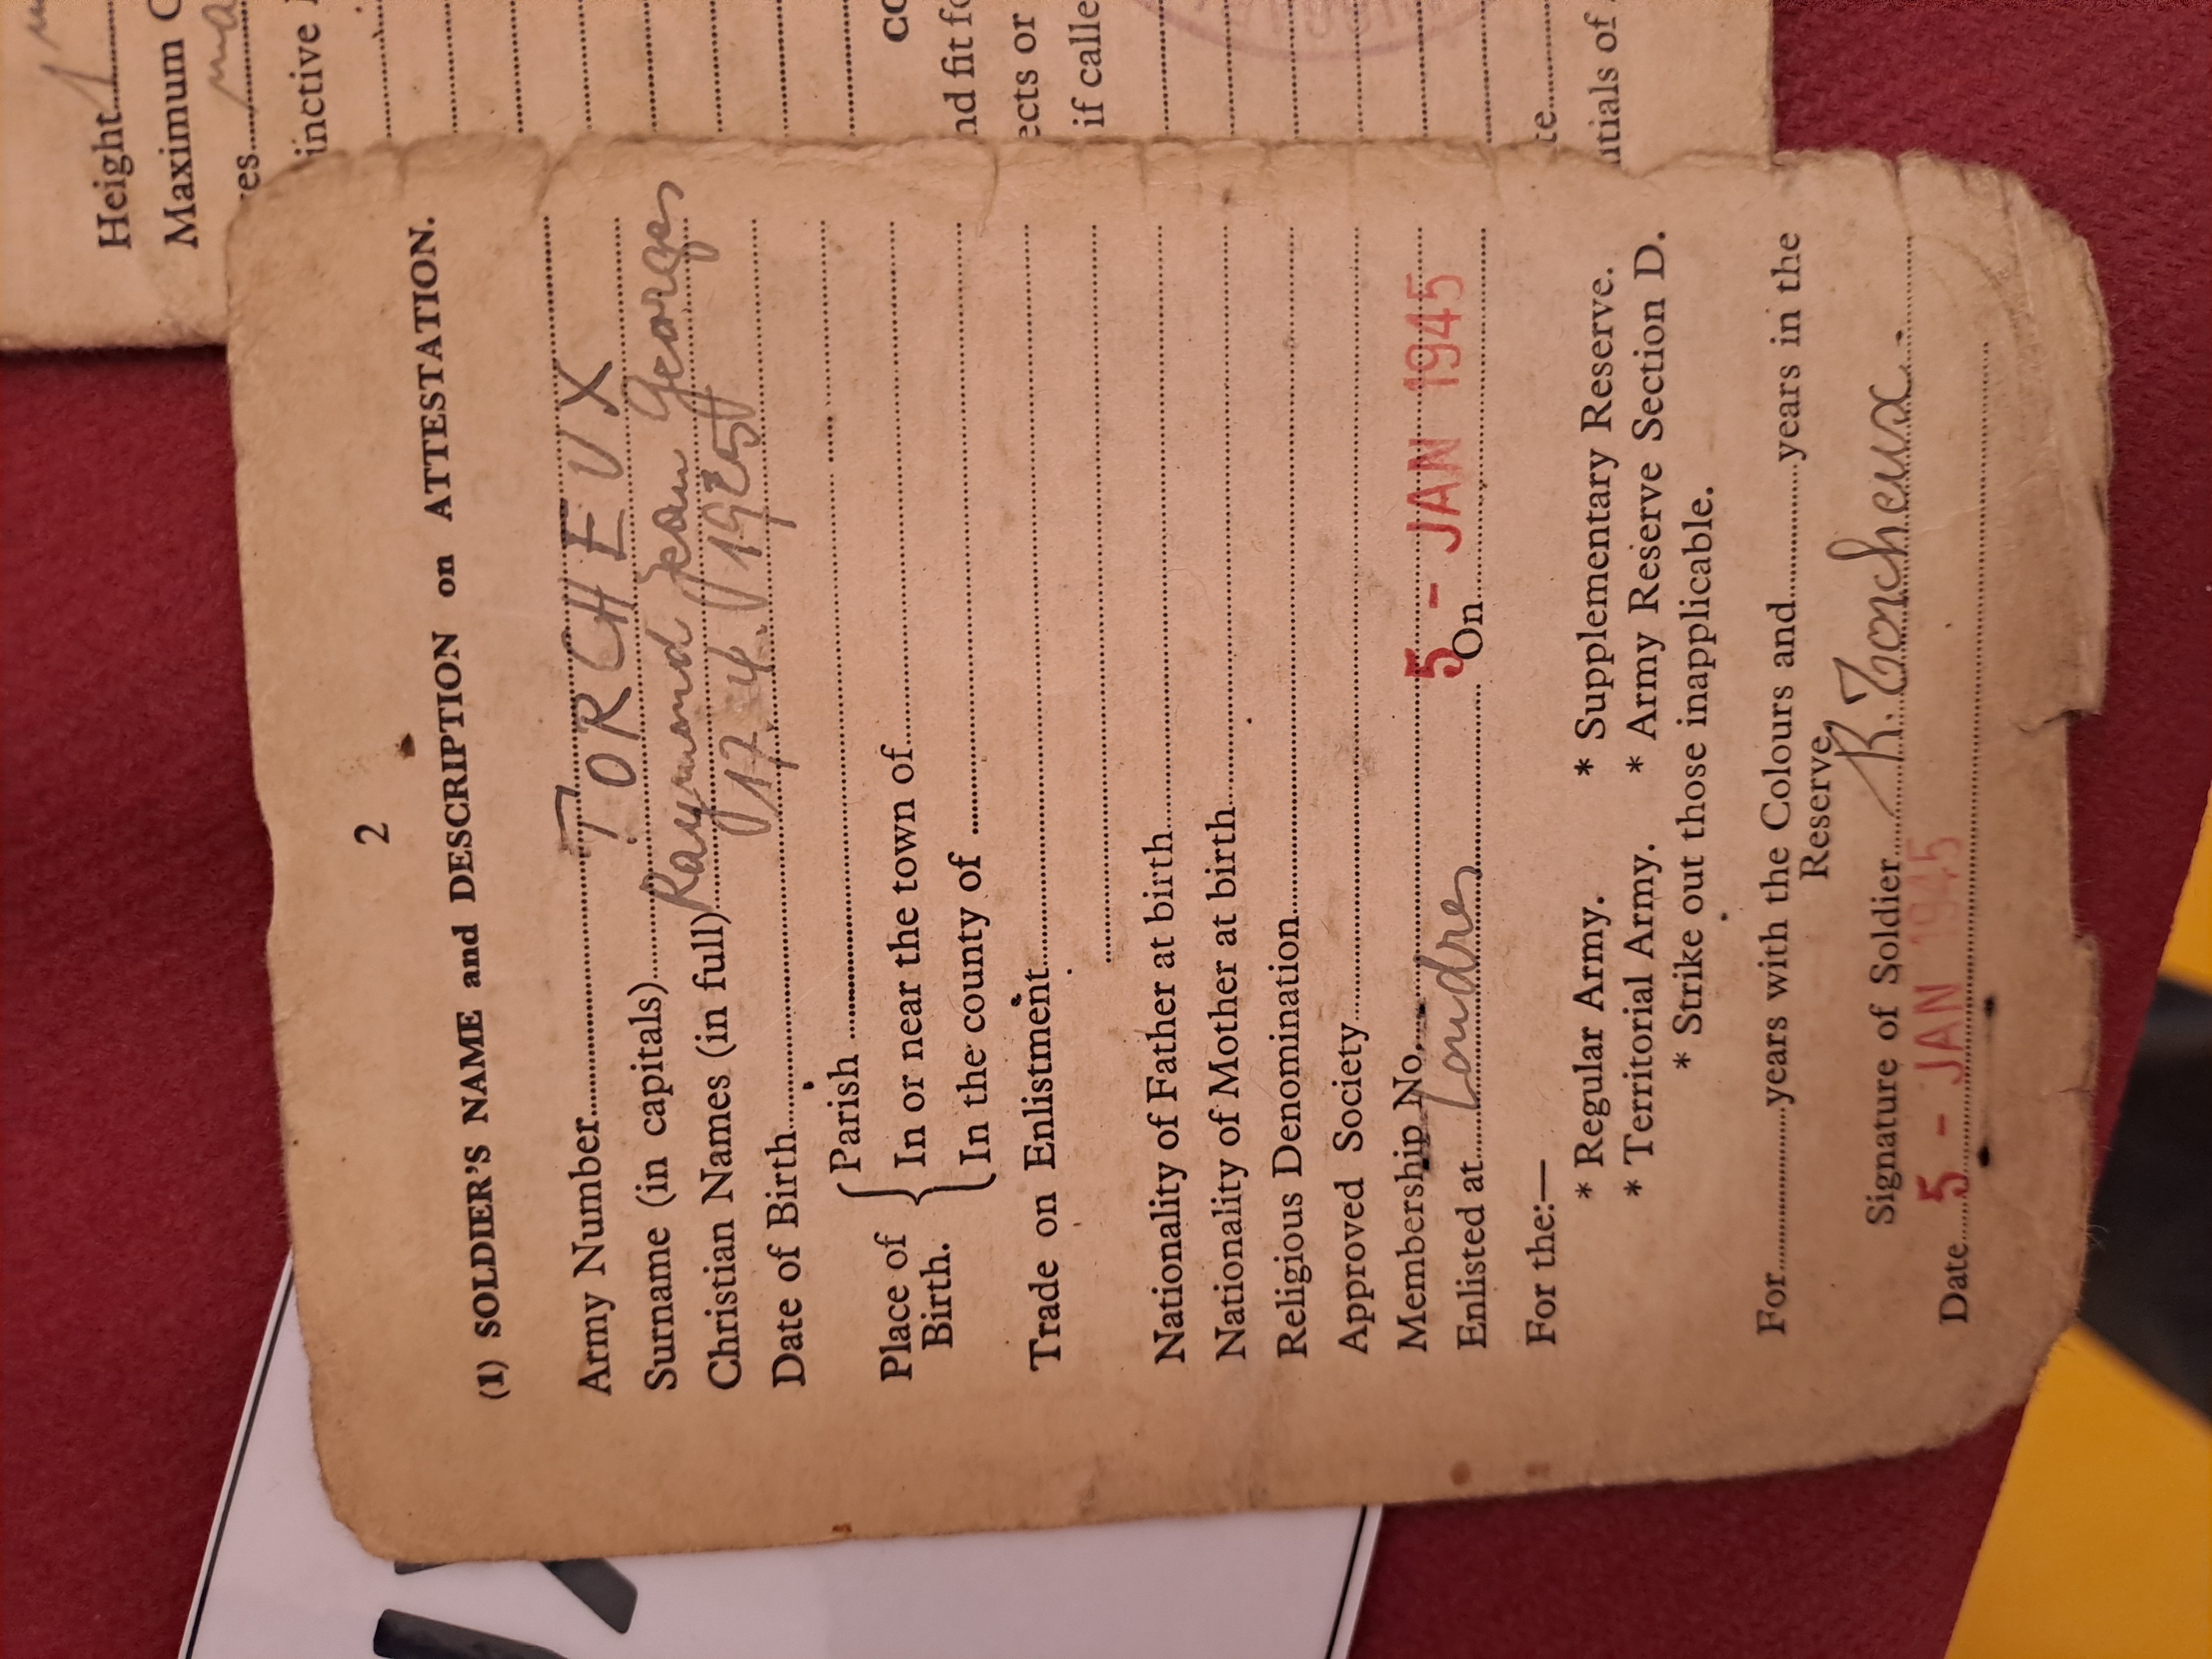 Height
Maximum C
inctive
nd fit fo
ects or
if calle
itials of
2
(1) SOLDIER'S NAME and DESCRIPTION on ATTESTATION.
Army Number
Surname (in capitals) TORCHEUX
Christian Names (in full) Raymond Jean Georges
Date of Birth 17.4.1925
Place of Birth. Parish
In or near the town of
In the county of
Trade on Enlistment
Nationality of Father at birth
Nationality of Mother at birth
Religious Denomination
Approved Society
Membership No.
5 - JAN 1945
Enlisted at Londres On
For the:—
* Regular Army. * Supplementary Reserve.
* Territorial Army. * Army Reserve Section D.
* Strike out those inapplicable.
For years with the Colours and years in the
Reserve
Signature of Soldier R. Torcheux
Date 5 - JAN 1945